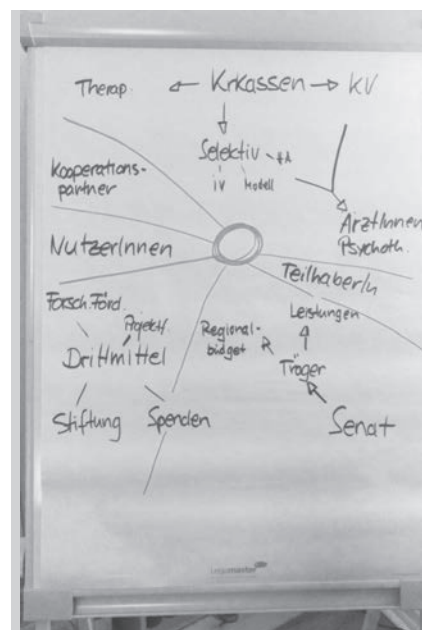 Therap. ← KrKassen → KV
Selektiv
IV Modell
Kooperations-
partner
ÄrztInnen
Psychoth.
NutzerInnen
TeilhaberIn
Forsch.Förd.
Projektf.
Drittmittel
Stiftung
Spenden
Leistungen
Regional-
budget
Träger
Senat
legamaster